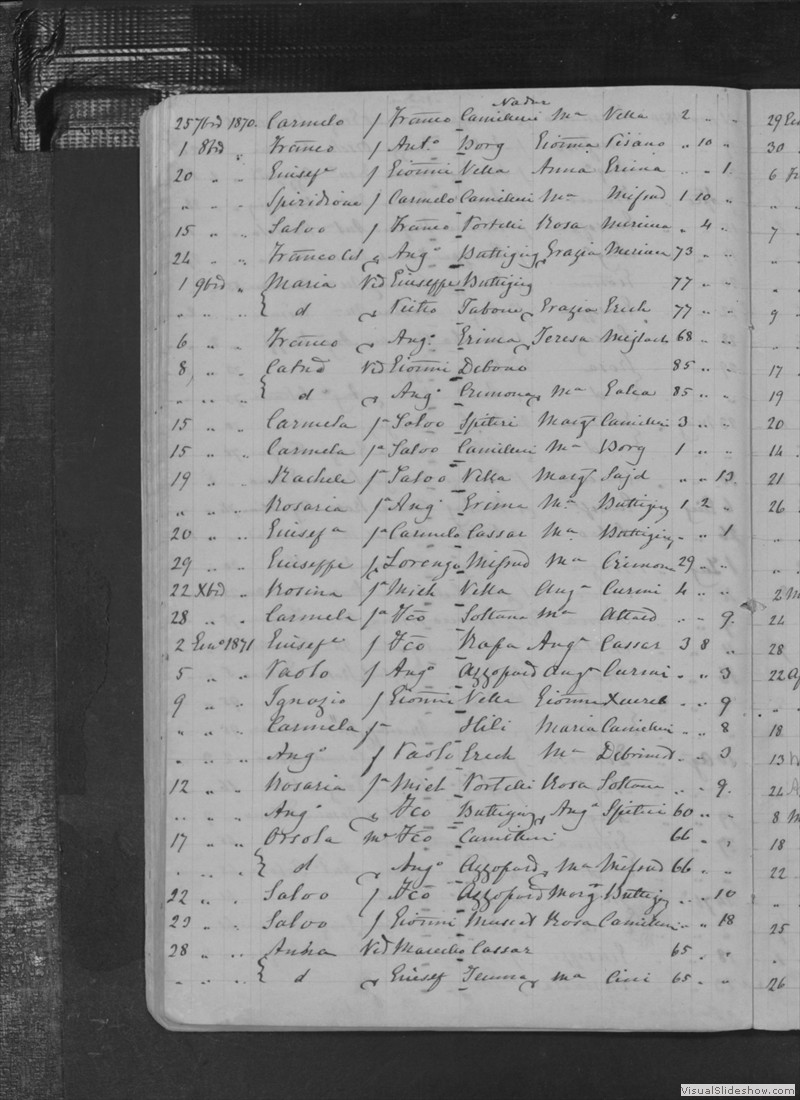 Nadur
25 7brē 1870. Carmelo f Franco Camilleri Ma Vella 2 " "
1 8brē " Franco f Anto Borg Giōnna Pisano " 10 "
20 " " Giusefa f Giōnni Vella Anna Grima " " 1
" " " Spiridione f Carmelo Camilleri Ma Mifsud 1 10 "
15 " " Salvo f Franco Portelli Rosa " 4 "
24 " " Franco Ango Buttigieg Grazia 73 " "
1 9brē " Maria Vid Giuseppe Buttigieg 77 " "
" " " { d Pietro Tabone Grazia Grech 77 " "
6 " " Franco Ango Grima Teresa 68 " "
8 " " Catnā Vid Giōnni Debono 85 " "
" " " { d Ango Cremona Ma Galea 85 " "
15 " " Carmela fa Salvo Spiteri Marga Camilleri 3 " "
15 " " Carmela fa Salvo Camilleri Ma Borg 1 " "
19 " " Rachele fa Salvo Vella Marga Said " " 13
" " " Rosaria fa Ango Grima Ma Buttigieg 1 2 "
20 " " Giusefa fa Carmelo Cassar Ma Buttigieg " " 1
29 " " Giuseppe Lorenzo Mifsud Ma Cremona 29 " "
22 Xbrē " Rosina fa Mich Vella Anga Curmi 4 " "
28 " " Carmela fa Fco Soltana Ma Attard " " 9
2 Geno 1871 Giusefe f Fco Rapa Anga Cassar 3 8 "
5 " " Paolo f Ango Azzopard Anga Curmi " " 3
9 " " Ignazio f Giōnni Vella Giōnna Xuereb " " 9
" " " Carmela fa Hili Maria Camilleri " " 8
" " " Ango f Paolo Grech Ma " " 3
12 " " Rosaria fa Mich Portelli Rosa Soltana " " 9
" " " Ango Fco Buttigieg Anga Spiteri 60 " "
17 " " Orsola Fco Camilleri 66 " "
" " " { d Ango Azzopard Ma Mifsud 66 " "
22 " " Salvo f Fco Azzopard Marga Buttigieg " " 10
23 " " Salvo f Giōnni Muscat Rosa Camilleri " " 18
28 " " Anna Vid Cassar 65 " "
" " " { d Giusef Ma Cini 65 " "
29
30
6
7
9
17
19
20
14
21
26
2
24
28
22
18
13
24
8
18
22
25
26
VisualSlideshow.com